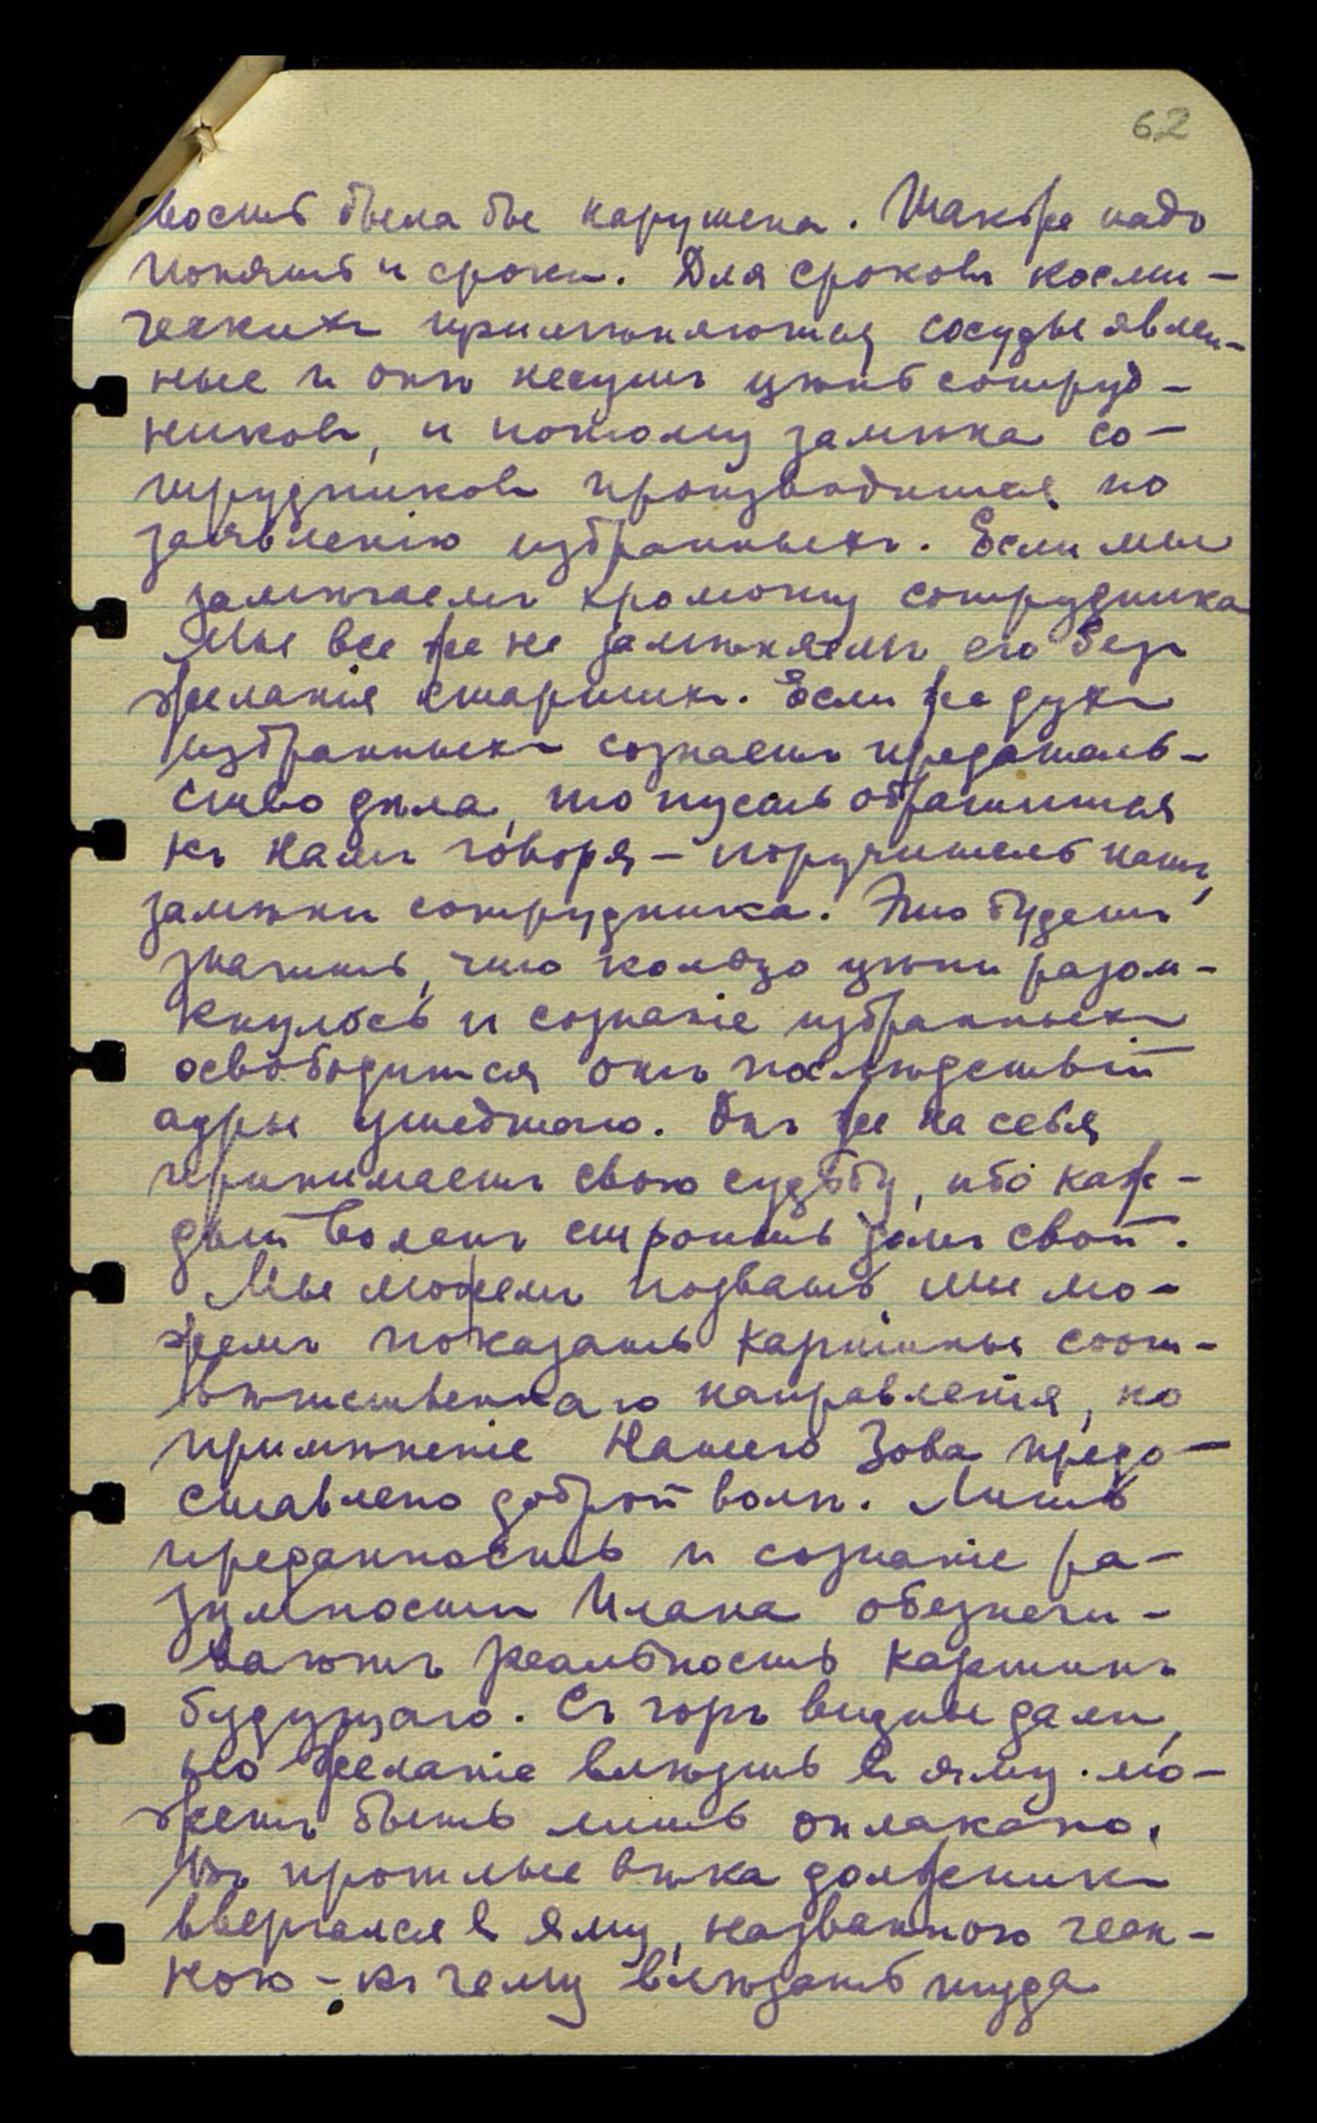 62
вость была бы нарушена. Также надо
понять и сроки. Для сроковъ косми-
ческихъ примѣняются сосуды явлен-
ные и они несутъ цѣпь сотруд-
никовъ, и потому замѣна со-
трудниковъ производится по
заявленію избранныхъ. Если мы
замѣчаемъ хромоту сотрудника
Мы все же не замѣняемъ его безъ
желанія старшихъ. Если же духъ
избранныхъ сознаетъ предатель-
ство дѣла, то пусть обратится
къ Намъ говоря – поручитель нашъ,
замѣни сотрудника. Это будетъ
значить, что кольцо цѣпи разом-
кнулось и сознаніе избранныхъ
освободится отъ послѣдствій
ауры ушедшаго. Онъ же на себя
принимаетъ свою судьбу, ибо каж-
дый воленъ строить домъ свой.
Мы можемъ позвать, мы мо-
жемъ показать картины соот-
вѣтственнаго направленія, но
примѣненіе Нашего Зова предо-
ставлено доброй волѣ. Лишь
преданность и сознаніе ра-
зумности Плана обезпечи-
ваютъ реальность картинъ
будущаго. Съ горъ видны дали,
но желаніе влѣзть въ яму мо-
жетъ быть лишь оплакано.
Въ прошлые вѣка должникъ
ввергался въ яму, названною
ною – къ чему влѣзать туда